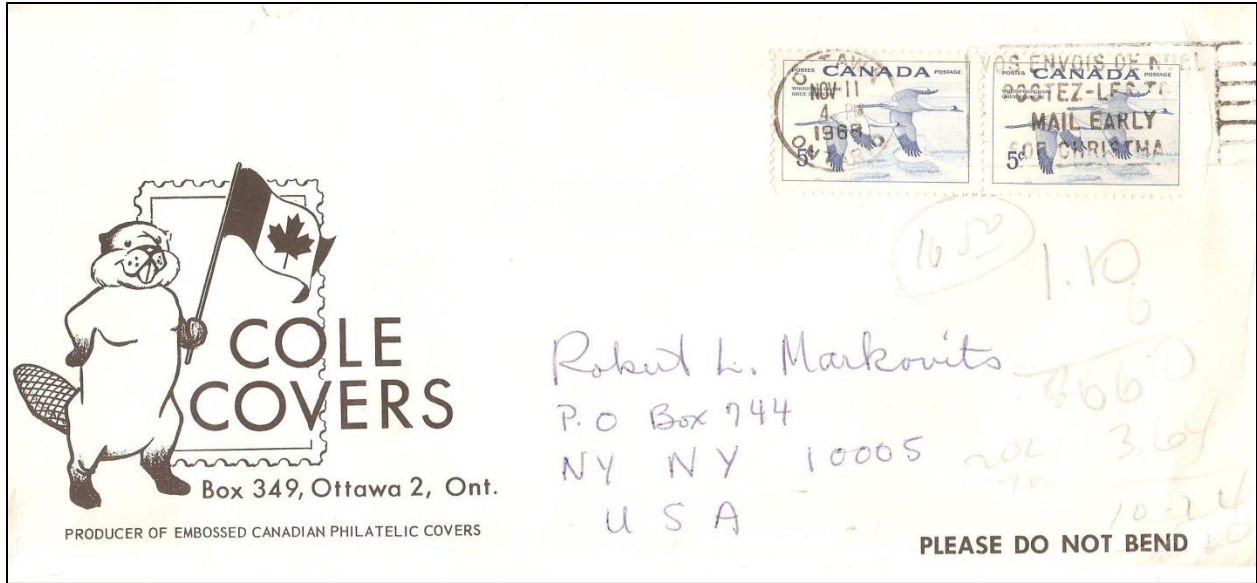 POSTES CANADA POSTAGE
WHOOPING CRANE
5¢
POSTES CANADA POSTAGE
WHOOPING CRANE
5¢
OTTAWA
NOV 11
4 PM
1968
ONTARIO
VOS ENVOIS DE NOEL
POSTEZ-LES
MAIL EARLY
FOR CHRISTMA
16 50
1.10
6
660
3.64
10.24
COLE
COVERS
Box 349, Ottawa 2, Ont.
PRODUCER OF EMBOSSED CANADIAN PHILATELIC COVERS
Robert L. Markovits
P.O Box 744
NY NY 10005
USA
PLEASE DO NOT BEND